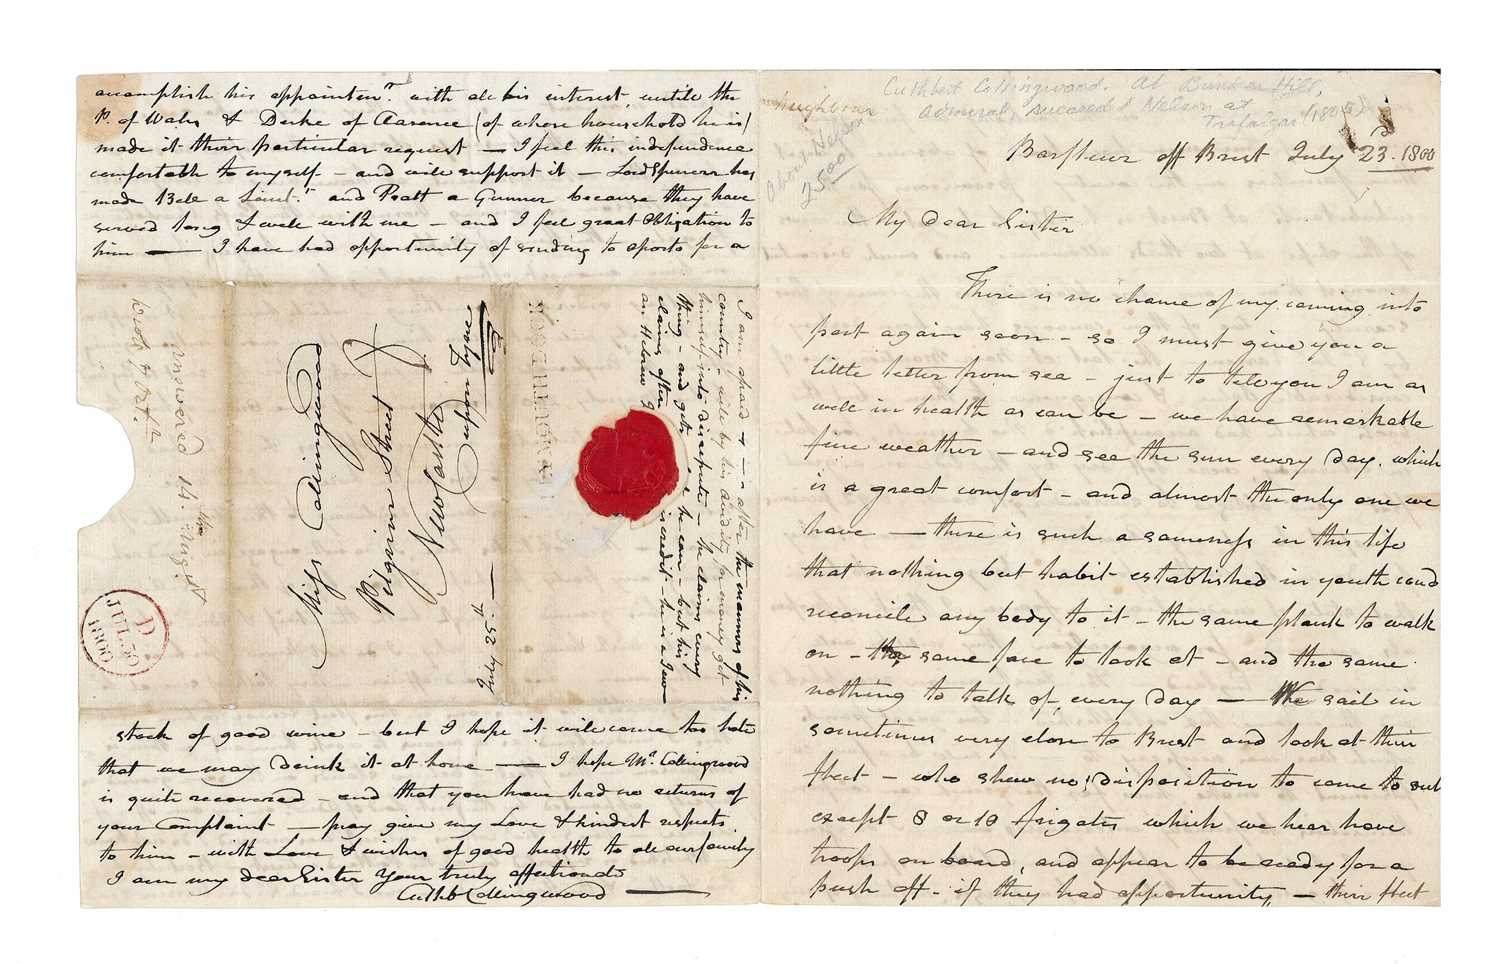 Cuthbert Collingwood. At Bunker Hill,
Admiral, succeeded Nelson at
Trafalgar (1805)
neighbour
About Nelson
2500
Barfleur off Brest July 23. 1800
My dear Sister
There is no chance of my coming into
port again soon - so I must give you a
little letter from sea - just to tell you I am as
well in health as can be - we have remarkable
fine weather - and see the sun every day. which
is a great comfort - and almost the only one we
have — there is such a sameness in this life
that nothing but habit established in youth could
reconcile any body to it - the same plank to walk
on - the same face to look at - and the same
nothing to talk of, every day — We sail in
sometimes very close to Brest and look at their
fleet - who shew no disposition to come to sea
except 8 or 10 frigates which we hear have
troops on board, and appear to be ready for a
push off - if they had opportunity, - their fleet
accomplish his appointent. with all his interest, untill the
P. of Wales & Duke of Clarence (of whose household he is)
made it their particular request — I feel this independence
comfortable to myself - and will support it - Lord Spencer has
made Bell a Lieut. and Pratt a Gunner because they have
served long & well with me - and I feel great Obligation to
him — I have had opportunity of sending to Oporto for a
stock of good wine - but I hope it will come too late
that we may drink it at home — I hope Mr. Collingwood
is quite recovered - and that you have had no returns of
your Complaint - pray give my Love & kindest respects
to him - with Love & wishes of good health to all our family
I am my dear Sister Your truly affectionate
Cuthb Collingwood
I am afraid — after the manners of his
country - will by his avidity for money get
himself into disrepute - he claims every
thing - and gets all he can - but his
claims often discredit - he is a Jew
an Hebrew
Miss Collingwood
Pilgrim Street
Newcastle
upon Tyne
July 25th
PLYMOUTH
answered 14th Augst
D
JUL 30
1800